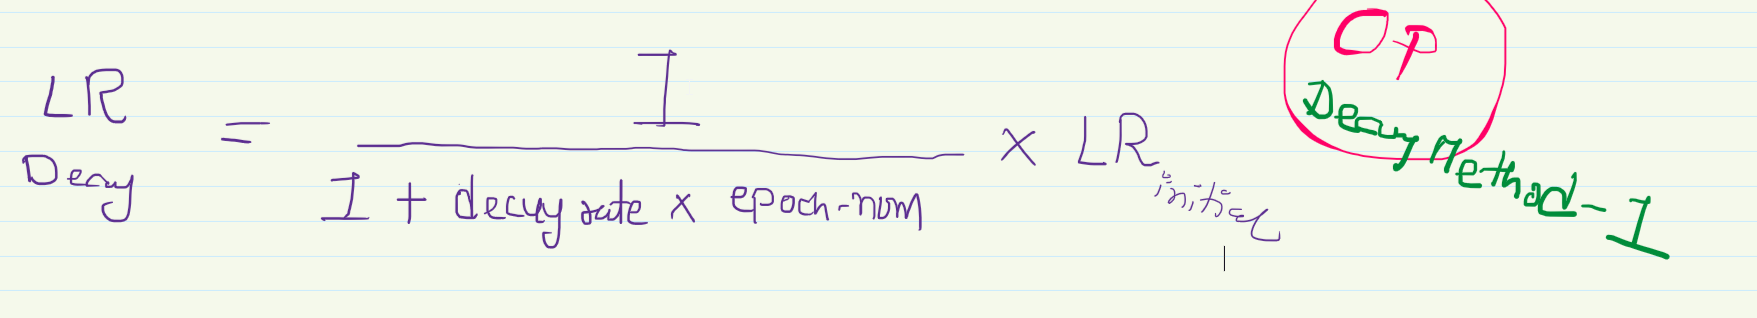 LR Decay = I / I + decay rate x epoch-num x LR initial
OP
Decay Method-I